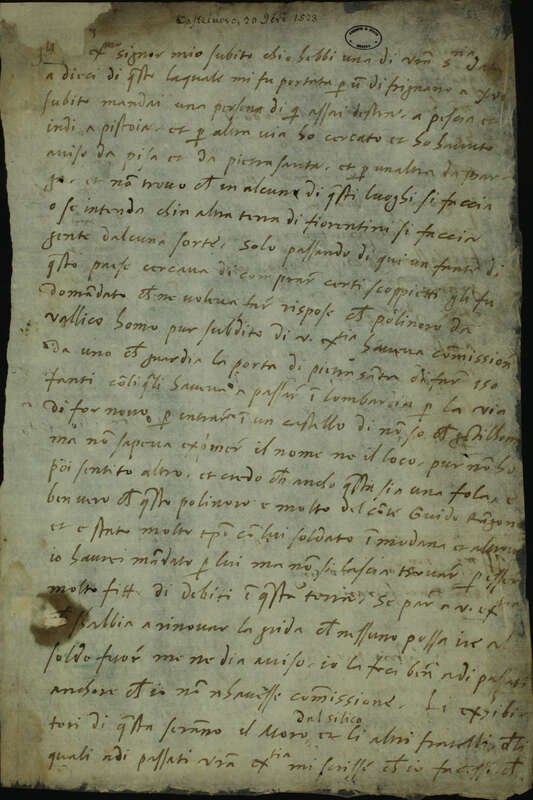 Castelnovo, 20 Xbri 1523
Ill.mo signor mio subito chio hebbi una di vra S.ria data
a dieci di q̃sto laquale mi fu portata p̃ uno di frignano a
subito mandai una persona di q̃ assai destra, a pescia et
indi a pistoia, et p̃ altra via ho cercato et ho havuto
aviso da pisa et da pietrasanta, et p̃ unaltra da
et nõ trovo ch̃ in alcuno di q̃sti luoghi si faccia
o se intenda chin altra terra di fiorentini si faccia
gente dalcuna sorte. Solo passando di qui un fante di
q̃sto paese cercava di comprar certi scoppietti gli fu
domãdato ch̃ ne voleva far, rispose ch̃ polinoro da
vallico homo pur subdito di v. ex.tia haveva cõmissiõn
da uno ch̃ guardia la porta di pietra santa di far 150
fanti cõ li q̃li haveva a passar ĩ lombardia p̃ la via
di fornovo p̃ intrar ĩ un castello di nõ so ch̃ gẽtilhomo
ma nõ sapeva exprimer il nome ne il loco, pur nõ ho
poi sentito altro, et credo ch̃ ancho q̃sta sia una fola, e
ben vero ch̃ q̃sto polinoro e molto del cõte Guido Rangone
et e stato molto tẽpo cõ lui soldato ĩ modana et altrove
io haverei mãdato p̃ lui ma nõ si lascia trovar p̃ esser
molto fitto di debiti ĩ q̃sta terra, Se par a v. ex.tia
ch̃ sabbia a rinovar la grida ch̃ nessuno possa ire al
soldo fuor me ne dia aviso, io la feci ben adi passati
anchora ch̃ io nõ nhavesse cõmissione. Li exhibi
tori di q̃sta serano el Moro dal silico et li altri fratelli, delli
quali adi passati vra ex.tia mi scrisse ch̃ io facessi ch̃